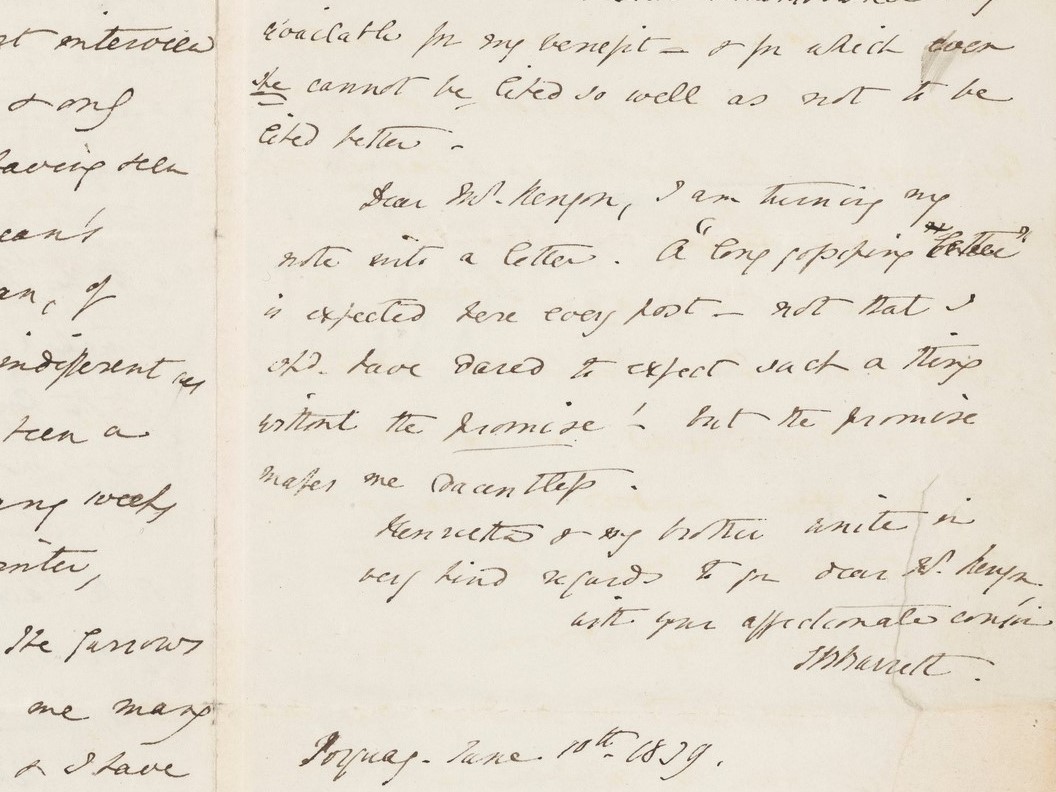 st interview
& ong
having seen
ean's
an, of
indifferent as
been a
ny weeks
inter,
The Garrows
me many
& I have
available for my benefit – & for which even
she cannot be liked so well as not to be
liked better –
Dear Mr. Kenyon, I am turning my
note into a letter. A "long gossiping letter"
is expected here every post – not that I
shd. have dared to expect such a thing
without the promise! – but the promise
makes me dauntless.
Henrietta & my brother unite in
very kind regards to you dear Mr. Kenyon
with your affectionate cousin
EBBarrett.
Torquay – June 10th. 1839.